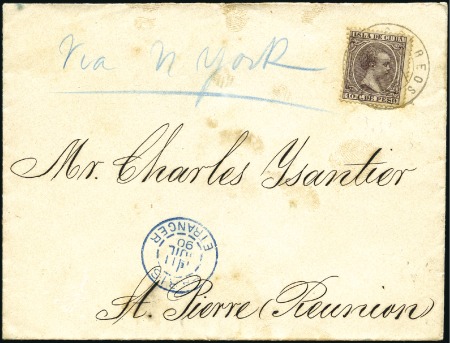 Via N York
ISLA DE CUBA
10 C. DE PESO
REOS
Mr. Charles Ysantier
ETRANGER
11
JUIL
90
St. Pierre (Reunion)